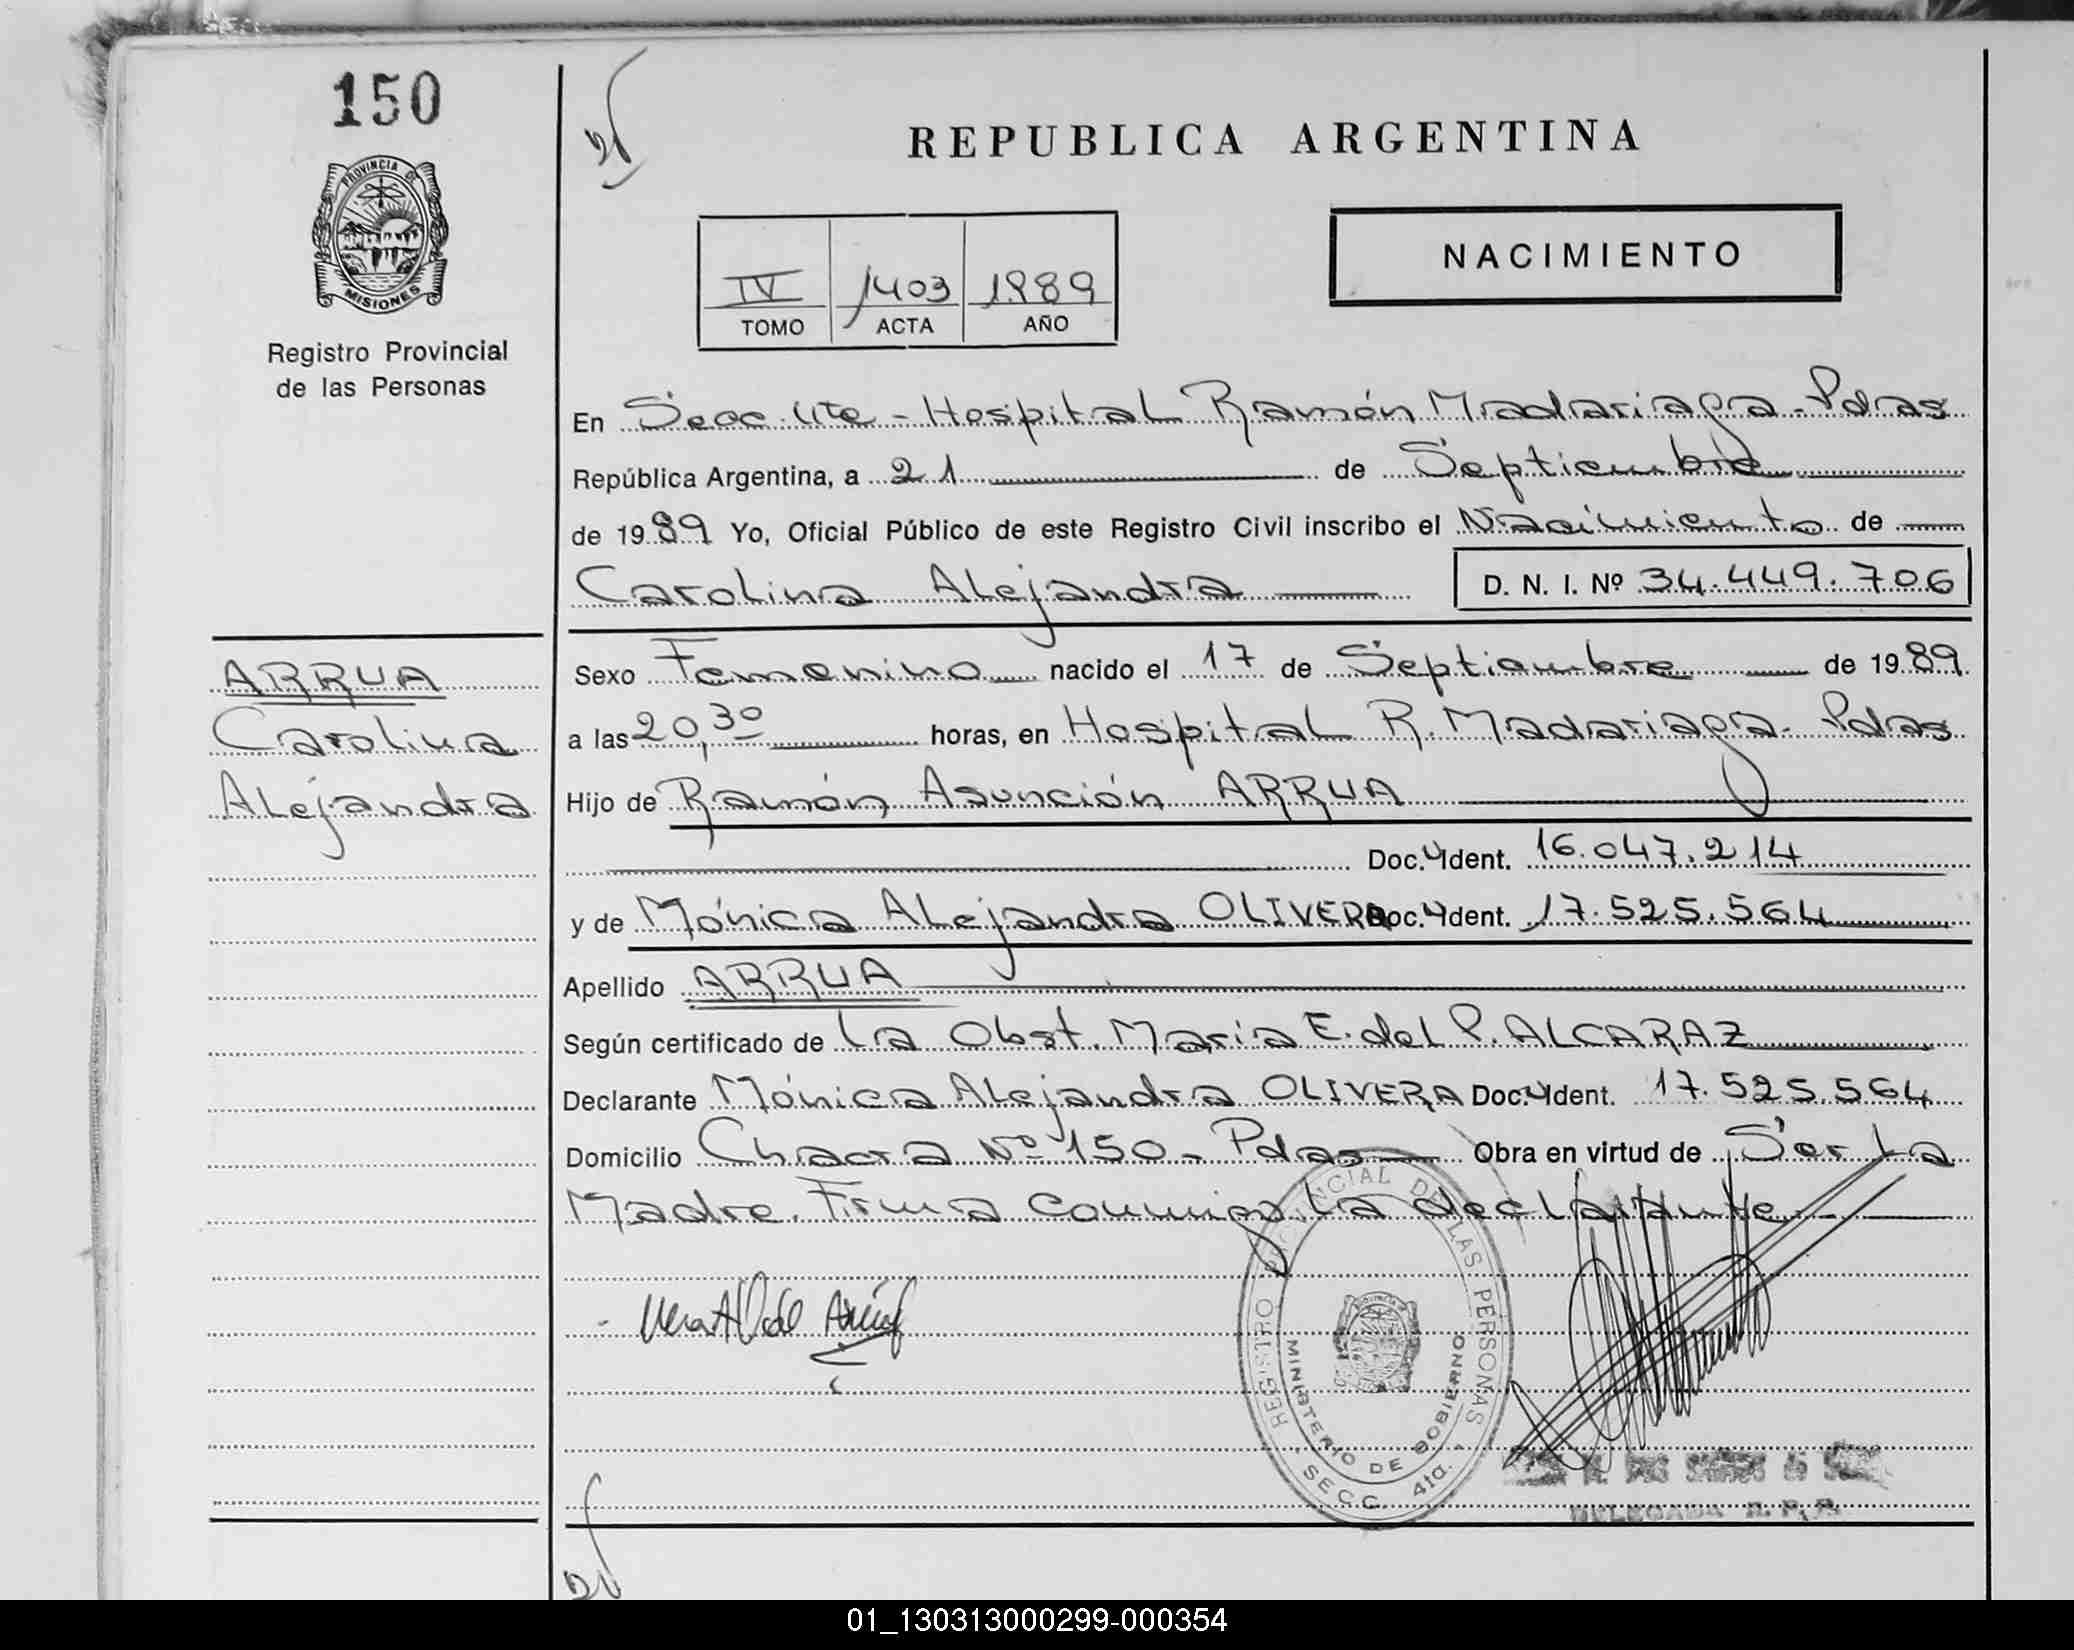 150
REPUBLICA ARGENTINA
PROVINCIA DE
MISIONES
Registro Provincial
de las Personas
IV 1403 1989
TOMO ACTA AÑO
NACIMIENTO
En Secc. 4ta - Hospital Ramón Madariaga - Pdas
República Argentina, a 21 de Septiembre
de 1989 Yo, Oficial Público de este Registro Civil inscribo el Nacimiento de
Carolina Alejandra D. N. I. Nº 34.449.706
ARRUA
Carolina
Alejandra
Sexo Femenino nacido el 17 de Septiembre de 1989
a las 20,30 horas, en Hospital R. Madariaga - Pdas
Hijo de Ramón Asunción ARRUA
Doc. Ident. 16.047.214
y de Mónica Alejandra OLIVERA Doc. Ident. 17.525.564
Apellido ARRUA
Según certificado de la Obst. María E. del P. ALCARAZ
Declarante Mónica Alejandra OLIVERA Doc. Ident. 17.525.564
Domicilio Chacra Nº 150 - Pdas Obra en virtud de Ser la
Madre. Firma conmigo la declarante
REGISTRO PROVINCIAL DE LAS PERSONAS
MINISTERIO DE GOBIERNO
SECC. 4ta.
DELEGADA R. P. P.
01_130313000299-000354